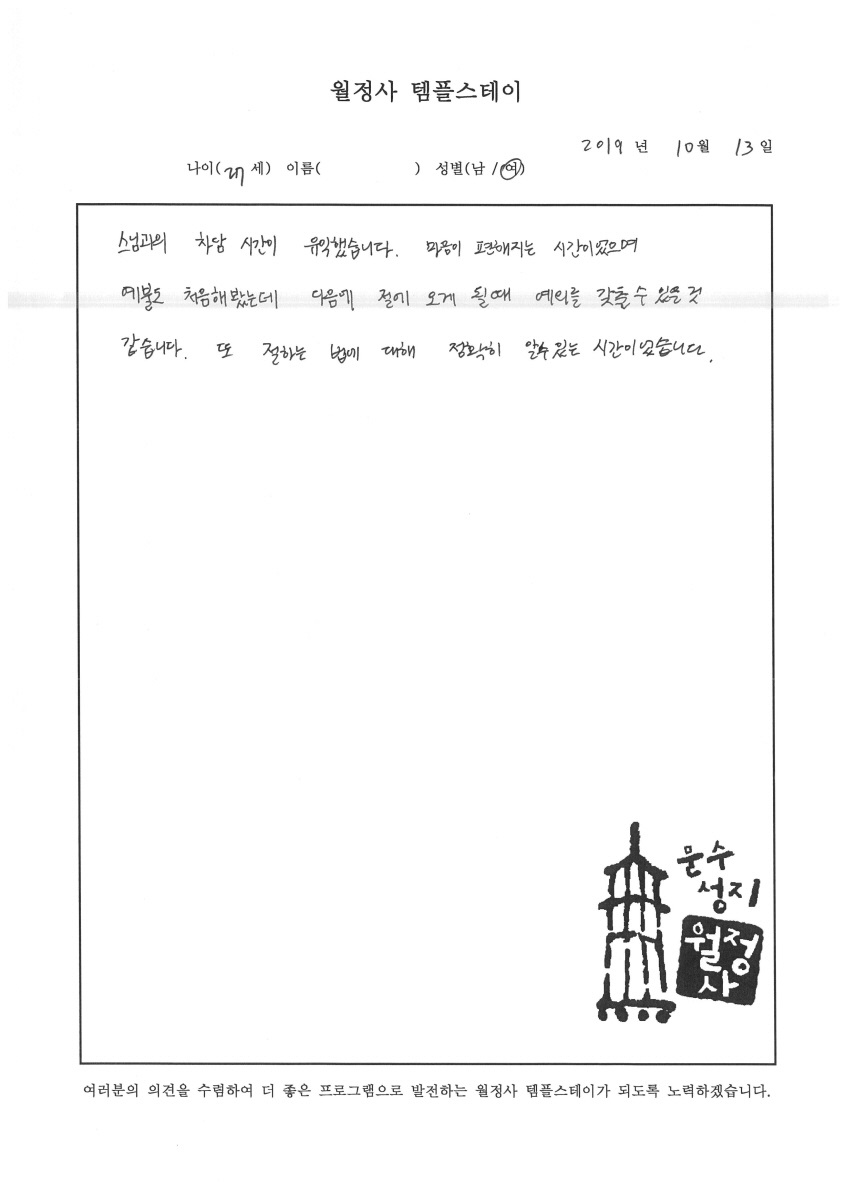 월정사 템플스테이
2019 년 10월 13일
나이(27세) 이름( ) 성별(남/여)
스님과의 차담 시간이 유익했습니다. 마음이 편해지는 시간이었으며
예불도 처음해봤는데 다음에 절에 오게 될때 예의를 갖출 수 있을 것
같습니다. 또 절하는 법에 대해 정확히 알수있는 시간이었습니다.
문수
성지
월정
사
여러분의 의견을 수렴하여 더 좋은 프로그램으로 발전하는 월정사 템플스테이가 되도록 노력하겠습니다.